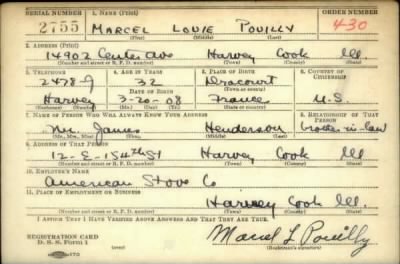 SERIAL NUMBER 1. NAME (Print) ORDER NUMBER
2755 MARCEL LOUIE POUILLY 430
(First) (Middle) (Last)
2. ADDRESS (Print)
14902 Center Ave Harvey Cook Ill.
(Number and street or R. F. D. number) (Town) (County) (State)
3. TELEPHONE 4. AGE IN YEARS 5. PLACE OF BIRTH 6. COUNTRY OF CITIZENSHIP
2478-J 32 Dracourt
DATE OF BIRTH (Town or county)
Harvey 3-20-08 France U.S.
(Exchange) (Number) (Mo.) (Day) (Yr.) (State or country)
7. NAME OF PERSON WHO WILL ALWAYS KNOW YOUR ADDRESS 8. RELATIONSHIP OF THAT PERSON
Mr. James Henderson brother-in-law
(Mr., Mrs., Miss) (First) (Middle) (Last)
9. ADDRESS OF THAT PERSON
12-E-154th St Harvey Cook Ill
(Number and street or R. F. D. number) (Town) (County) (State)
10. EMPLOYER'S NAME
American Stove Co
11. PLACE OF EMPLOYMENT OR BUSINESS
Harvey Cook Ill.
(Number and street or R. F. D. number) (Town) (County) (State)
I AFFIRM THAT I HAVE VERIFIED ABOVE ANSWERS AND THAT THEY ARE TRUE.
REGISTRATION CARD
D. S. S. Form 1 Marcel L Pouilly
(Registrant's signature)